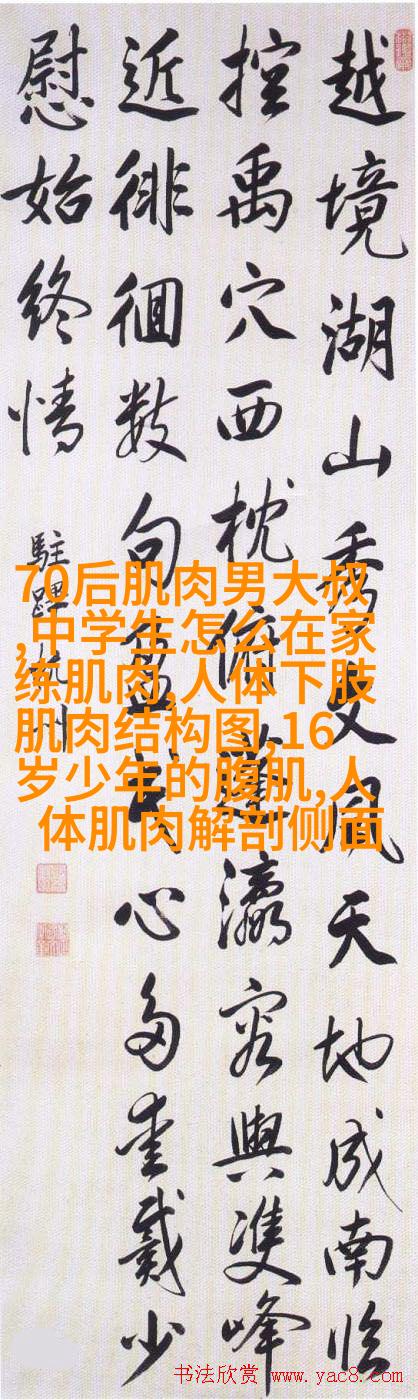 越境湖山秀文風天地成南臨
控禹穴西枕俯蓬瀛容與雙峰
近徘徊数句盈寸心多愛戴少
慰始終情
駐蹕杭州
70后肌肉男大叔
,中学生怎么在家
练肌肉,人体下肢
肌肉结构图,16
岁少年的腹肌,人
体肌肉解剖侧面
书法欣赏 www.yac8.com